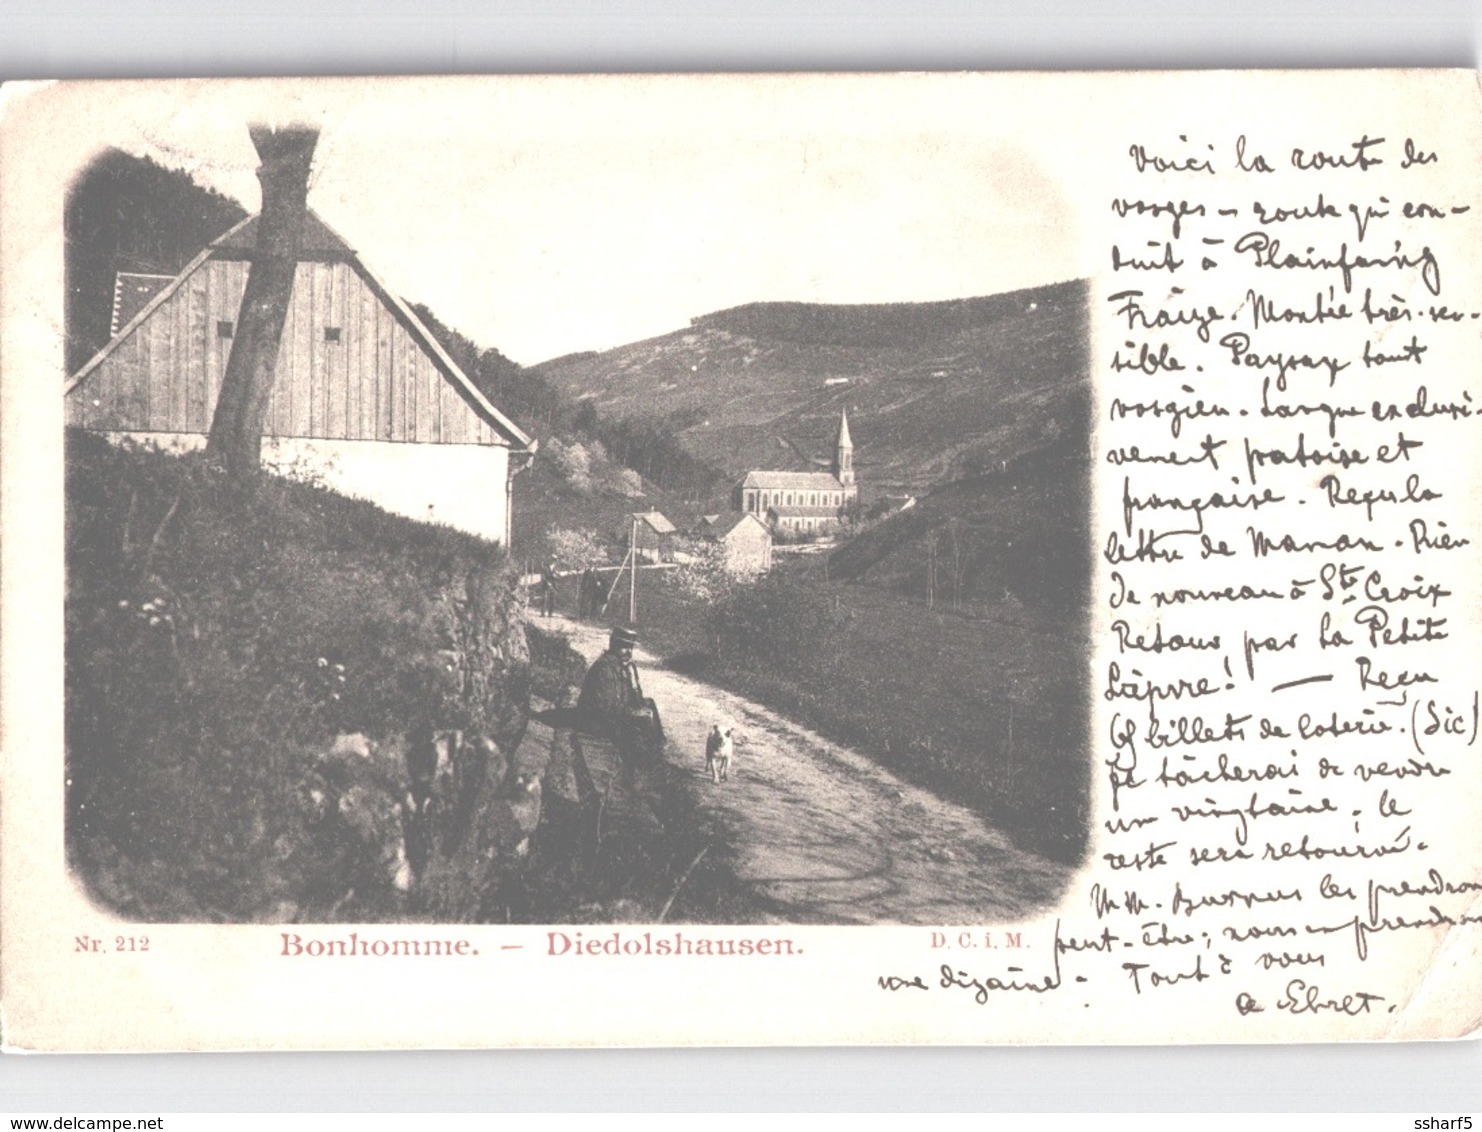 Voici la route des
Vosges - route qui con-
duit à Plainfaing
Fraize. Montée très-sen-
sible. Paysax tout
vosgien. Langue exclusi-
vement patoise et
française. Reçu la
lettre de Maman. Rien
de nouveau à Ste Croix
Retour par la Petite
Lièpvre! — Reçu
billets de loterie. (Sic)
Je tâcherai de vendre
un vingtaine, le
reste sera retourné.
M M. les prendron
peut-être; nous en prendrons
une dizaine. Tout à vous
a Ebret.
Nr. 212 Bonhomme. – Diedolshausen. D. C. i. M.
www.delcampe.net ssharf5